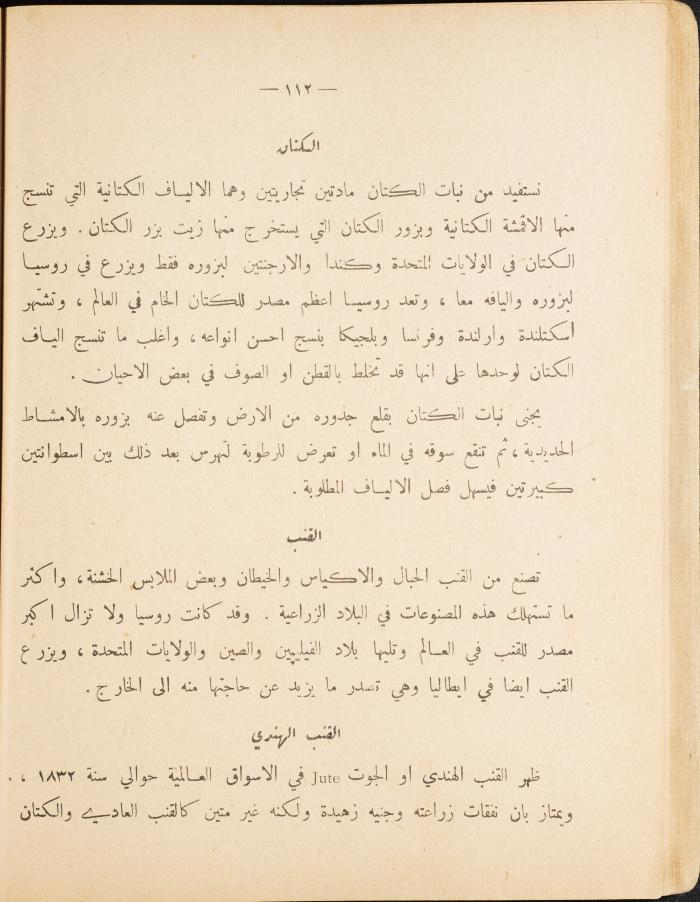 — ١١٢ —
الكتان
نستفيد من نبات الكتان مادتين تجاريتين وهما الالياف الكتانية التي تنسج
منها الاقمشة الكتانية وبزور الكتان التي يستخرج منها زيت بزر الكتان . ويزرع
الكتان في الولايات المتحدة وكندا والارجنتين لبزوره فقط ويزرع في روسيا
لبزوره واليافه معا ، وتعد روسيا اعظم مصدر للكتان الخام في العالم ، وتشتهر
اسكتلندة وارلندة وفرنسا وبلجيكا بنسج احسن انواعه ، واغلب ما تنسج الياف
الكتان لوحدها على انها قد تخلط بالقطن او الصوف في بعض الاحيان .
يجنى نبات الكتان بقلع جذوره من الارض وتفصل عنه بزوره بالامشاط
الحديدية ، ثم تنقع سوقه في الماء او تعرض للرطوبة لتهرس بعد ذلك بين اسطوانتين
كبيرتين فيسهل فصل الالياف المطلوبة .
القنب
تصنع من القنب الحبال والاكياس والخيطان وبعض الملابس الخشنة ، واكثر
ما تستهلك هذه المصنوعات في البلاد الزراعية . وقد كانت روسيا ولا تزال اكبر
مصدر للقنب في العالم وتليها بلاد الفيليبين والصين والولايات المتحدة ، ويزرع
القنب ايضا في ايطاليا وهي تصدر ما يزيد عن حاجتها منه الى الخارج .
القنب الهندي
ظهر القنب الهندي او الجوت Jute في الاسواق العالمية حوالي سنة ١٨٣٢ ،
ويمتاز بان نفقات زراعته وجنيه زهيدة ولكنه غير متين كالقنب العادي والكتان